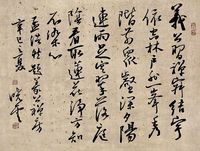 義公習禪寂結宇
依空林戶外一峯秀
階前衆壑深夕陽
連雨足空翠落庭
陰看取蓮花淨方知
不染心
孟浩然題義公禪房
辛巳夏